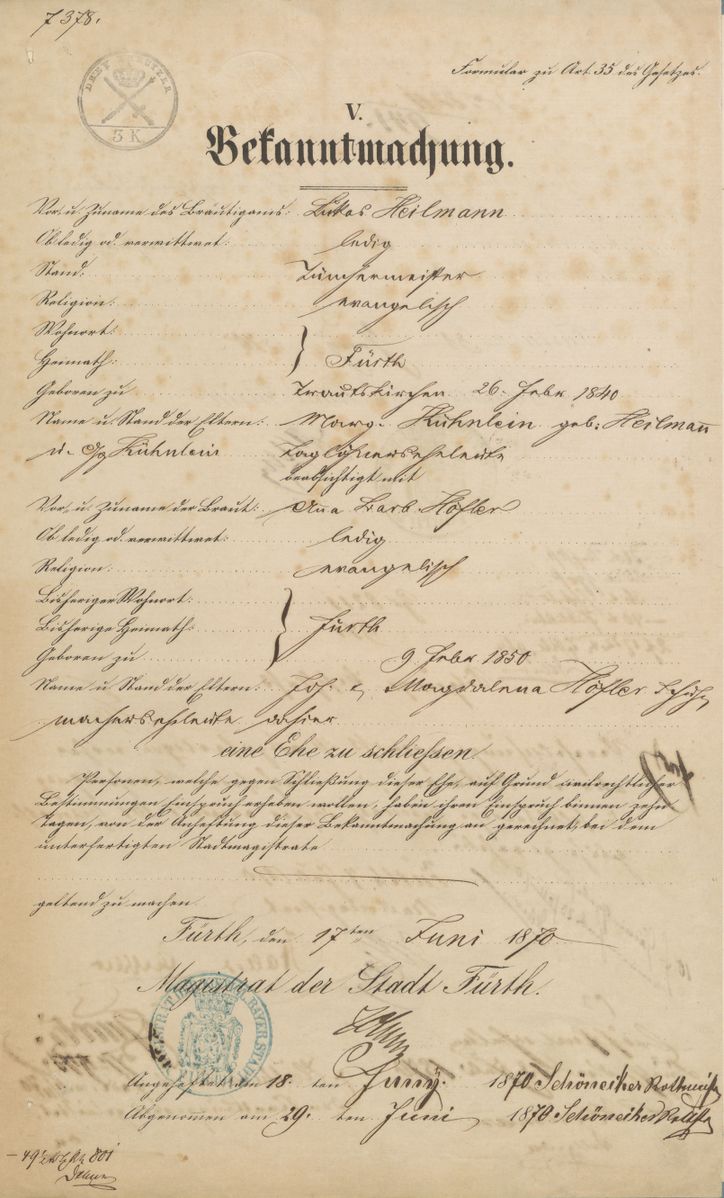 7378.
DREY KREUTZER
3 K.
Formular zu Art. 35 des Gesetzes.
V.
Bekanntmachung.
Vor- u. Zuname des Bräutigams: Lukas Heilmann
Ob ledig od. verwittwet: ledig
Stand: Tünchermeister
Religion: evangelisch
Wohnort:
Heimath: } Fürth
Geboren zu Trautskirchen 26. Febr 1840
Name u. Stand der Eltern: Marg. Kühnlein geb. Heilmann
u. Gg Kühnlein Taglöhnerseheleute
beabsichtigt mit
Vor- u. Zuname der Braut: Anna Barb. Höfler
Ob ledig od. verwittwet: ledig
Religion: evangelisch
Bisheriger Wohnort:
Bisherige Heimath: } Fürth
Geboren zu 9 Febr 1850
Name u. Stand der Eltern: Joh. & Magdalena Höfler Schuh-
machерseheleute dahier
eine Ehe zu schliessen.
Personen, welche gegen Schließung dieser Ehe, auf Grund civilrechtlicher
Bestimmungen Einspruch erheben wollen, haben ihren Einspruch binnen zehn
Tagen, von der Anheftung dieser Bekanntmachung an gerechnet, bei dem
unterfertigten Stadtmagistrate
geltend zu machen.
Fürth, den 17ten Juni 1870
Magistrat der Stadt Fürth.
Angeheftet am 18. ten Juny. 1870 Schöneiher Rottmeister
Abgenommen am 29. ten Juni 1870 Schöneiher Rottmstr